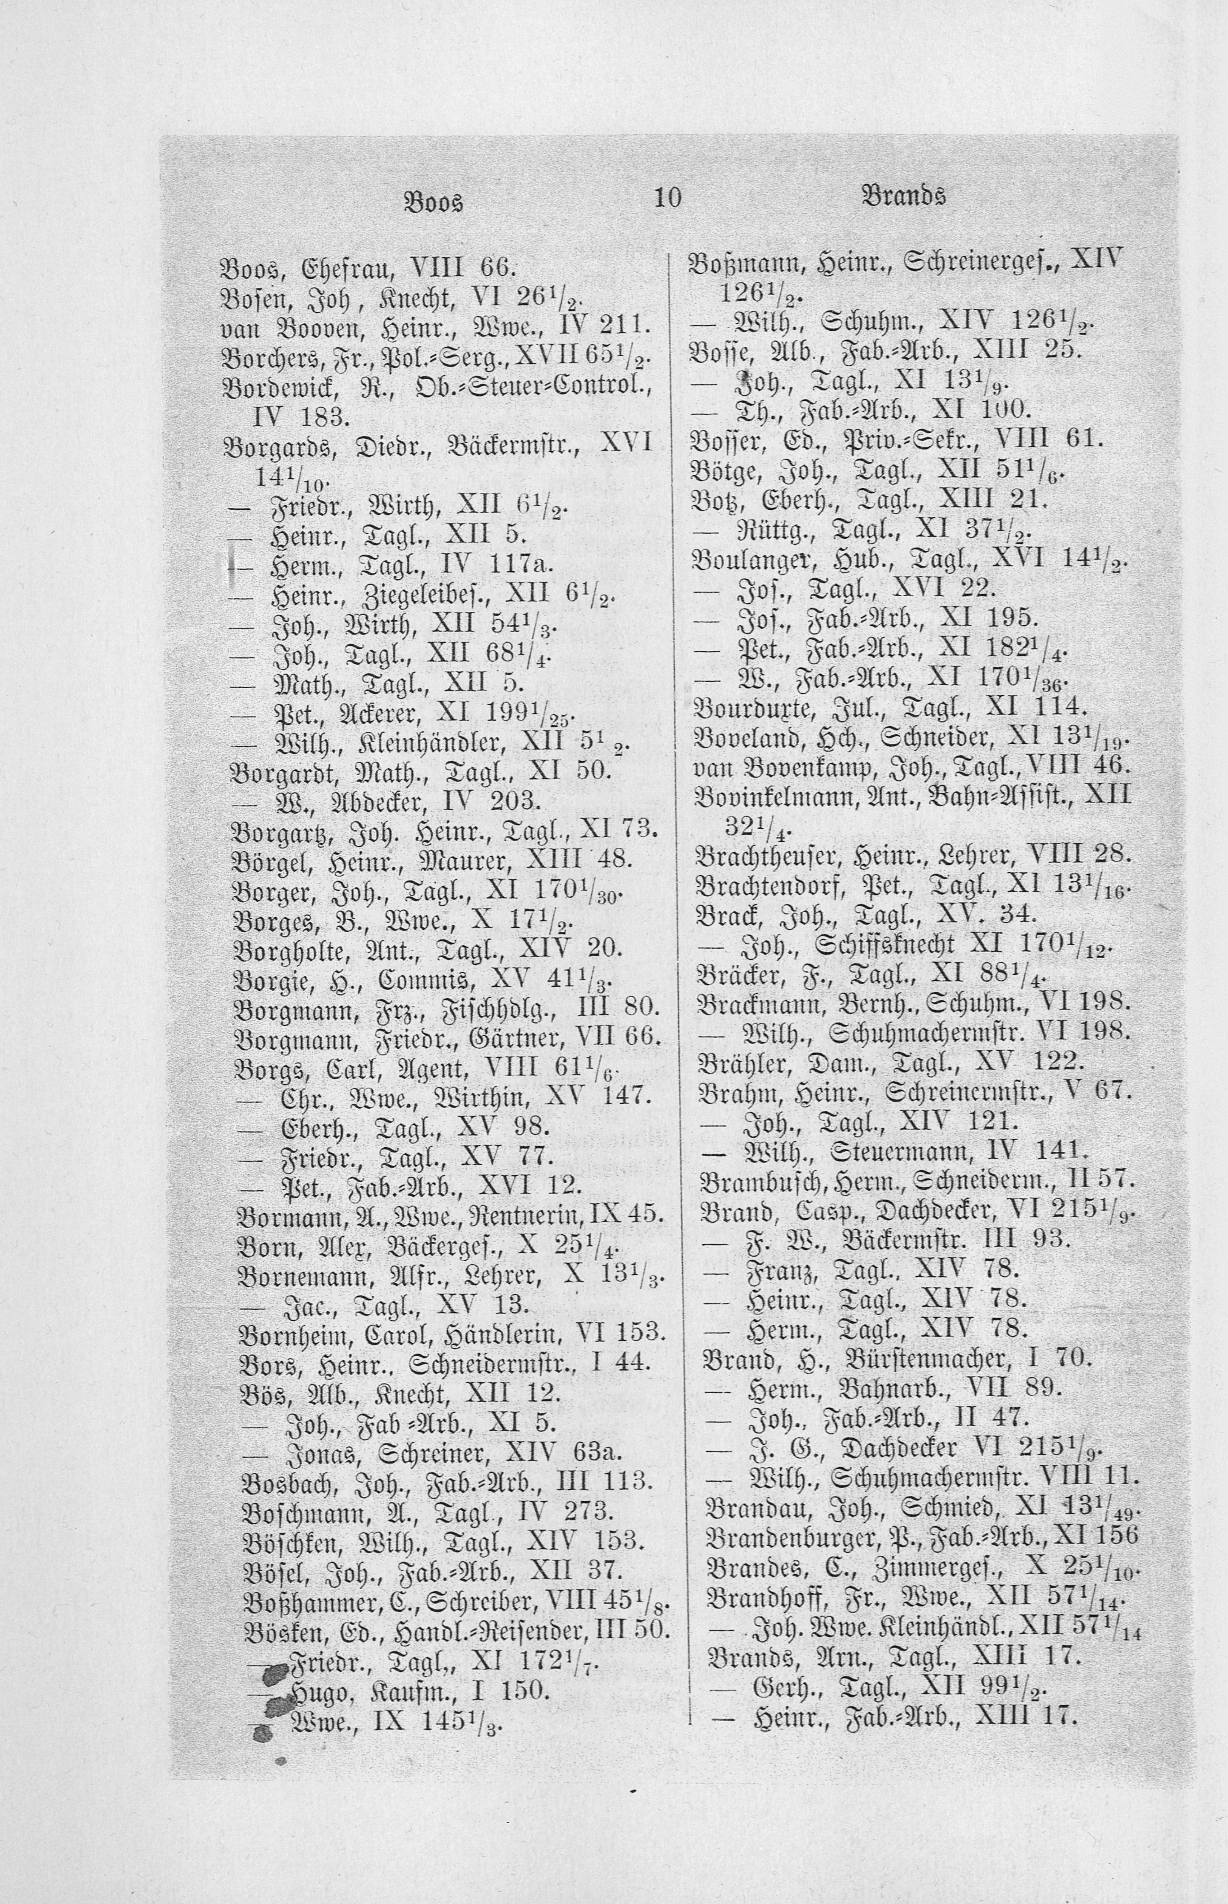 Boos 10 Brands
Boos, Ehefrau, VIII 66.
Bosen, Joh, Knecht, VI 26 1/2.
van Booven, Heinr., Wwe., IV 211.
Borchers, Fr., Pol.-Serg., XVII 65 1/2.
Bordewick, R., Ob.-Steuer-Control.,
IV 183.
Borgards, Diedr., Bäckermstr., XVI
14 1/10.
— Friedr., Wirth, XII 6 1/2.
— Heinr., Tagl., XII 5.
— Herm., Tagl., IV 117a.
— Heinr., Ziegeleibes., XII 6 1/2.
— Joh., Wirth, XII 54 1/3.
— Joh., Tagl., XII 68 1/4.
— Math., Tagl., XII 5.
— Pet., Ackerer, XI 199 1/25.
— Wilh., Kleinhändler, XII 5 1 2.
Borgardt, Math., Tagl., XI 50.
— W., Abdecker, IV 203.
Borgartz, Joh. Heinr., Tagl., XI 73.
Börgel, Heinr., Maurer, XIII 48.
Borger, Joh., Tagl., XI 170 1/30.
Borges, B., Wwe., X 17 1/2.
Borgholte, Ant., Tagl., XIV 20.
Borgie, H., Commis, XV 41 1/3.
Borgmann, Frz., Fischhdlg., III 80.
Borgmann, Friedr., Gärtner, VII 66.
Borgs, Carl, Agent, VIII 61 1/6.
— Chr., Wwe., Wirthin, XV 147.
— Eberh., Tagl., XV 98.
— Friedr., Tagl., XV 77.
— Pet., Fab.-Arb., XVI 12.
Bormann, A., Wwe., Rentnerin, IX 45.
Born, Alex, Bäckerges., X 25 1/4.
Bornemann, Alfr., Lehrer, X 13 1/3.
— Jac., Tagl., XV 13.
Bornheim, Carol, Händlerin, VI 153.
Bors, Heinr., Schneidermstr., I 44.
Bös, Alb., Knecht, XII 12.
— Joh., Fab-Arb., XI 5.
— Jonas, Schreiner, XIV 63a.
Bosbach, Joh., Fab.-Arb., III 113.
Boschmann, A., Tagl., IV 273.
Böschken, Wilh., Tagl., XIV 153.
Bösel, Joh., Fab.-Arb., XII 37.
Boßhammer, C., Schreiber, VIII 45 1/8.
Bösken, Ed., Handl.-Reisender, III 50.
— Friedr., Tagl., XI 172 1/7.
— Hugo, Kaufm., I 150.
— Wwe., IX 145 1/3.
Boßmann, Heinr., Schreinerges., XIV
126 1/2.
— Wilh., Schuhm., XIV 126 1/2.
Bosse, Alb., Fab.-Arb., XIII 25.
— Joh., Tagl., XI 13 1/9.
— Th., Fab.-Arb., XI 100.
Bosser, Ed., Priv.-Sekr., VIII 61.
Bötge, Joh., Tagl., XII 51 1/6.
Botz, Eberh., Tagl., XIII 21.
— Rüttg., Tagl., XI 37 1/2.
Boulanger, Hub., Tagl., XVI 14 1/2.
— Jos., Tagl., XVI 22.
— Jos., Fab.-Arb., XI 195.
— Pet., Fab.-Arb., XI 182 1/4.
— W., Fab.-Arb., XI 170 1/36.
Bourduxte, Jul., Tagl., XI 114.
Boveland, Hch., Schneider, XI 13 1/19.
van Bovenkamp, Joh., Tagl., VIII 46.
Bovinkelmann, Ant., Bahn-Assist., XII
32 1/4.
Brachtheuser, Heinr., Lehrer, VIII 28.
Brachtendorf, Pet., Tagl., XI 13 1/16.
Brack, Joh., Tagl., XV. 34.
— Joh., Schiffsknecht XI 170 1/12.
Bräcker, F., Tagl., XI 88 1/4.
Brackmann, Bernh., Schuhm., VI 198.
— Wilh., Schuhmachermstr. VI 198.
Brähler, Dam., Tagl., XV 122.
Brahm, Heinr., Schreinermstr., V 67.
— Joh., Tagl., XIV 121.
— Wilh., Steuermann, IV 141.
Brambusch, Herm., Schneiderm., II 57.
Brand, Casp., Dachdecker, VI 215 1/9.
— F. W., Bäckermstr. III 93.
— Franz, Tagl., XIV 78.
— Heinr., Tagl., XIV 78.
— Herm., Tagl., XIV 78.
Brand, H., Bürstenmacher, I 70.
— Herm., Bahnarb., VII 89.
— Joh., Fab.-Arb., II 47.
— J. G., Dachdecker VI 215 1/9.
— Wilh., Schuhmachermstr. VIII 11.
Brandau, Joh., Schmied, XI 13 1/49.
Brandenburger, P., Fab.-Arb., XI 156
Brandes, C., Zimmerges., X 25 1/10.
Brandhoff, Fr., Wwe., XII 57 1/14.
— Joh. Wwe. Kleinhändl., XII 57 1/14
Brands, Arn., Tagl., XIII 17.
— Gerh., Tagl., XII 99 1/2.
— Heinr., Fab.-Arb., XIII 17.